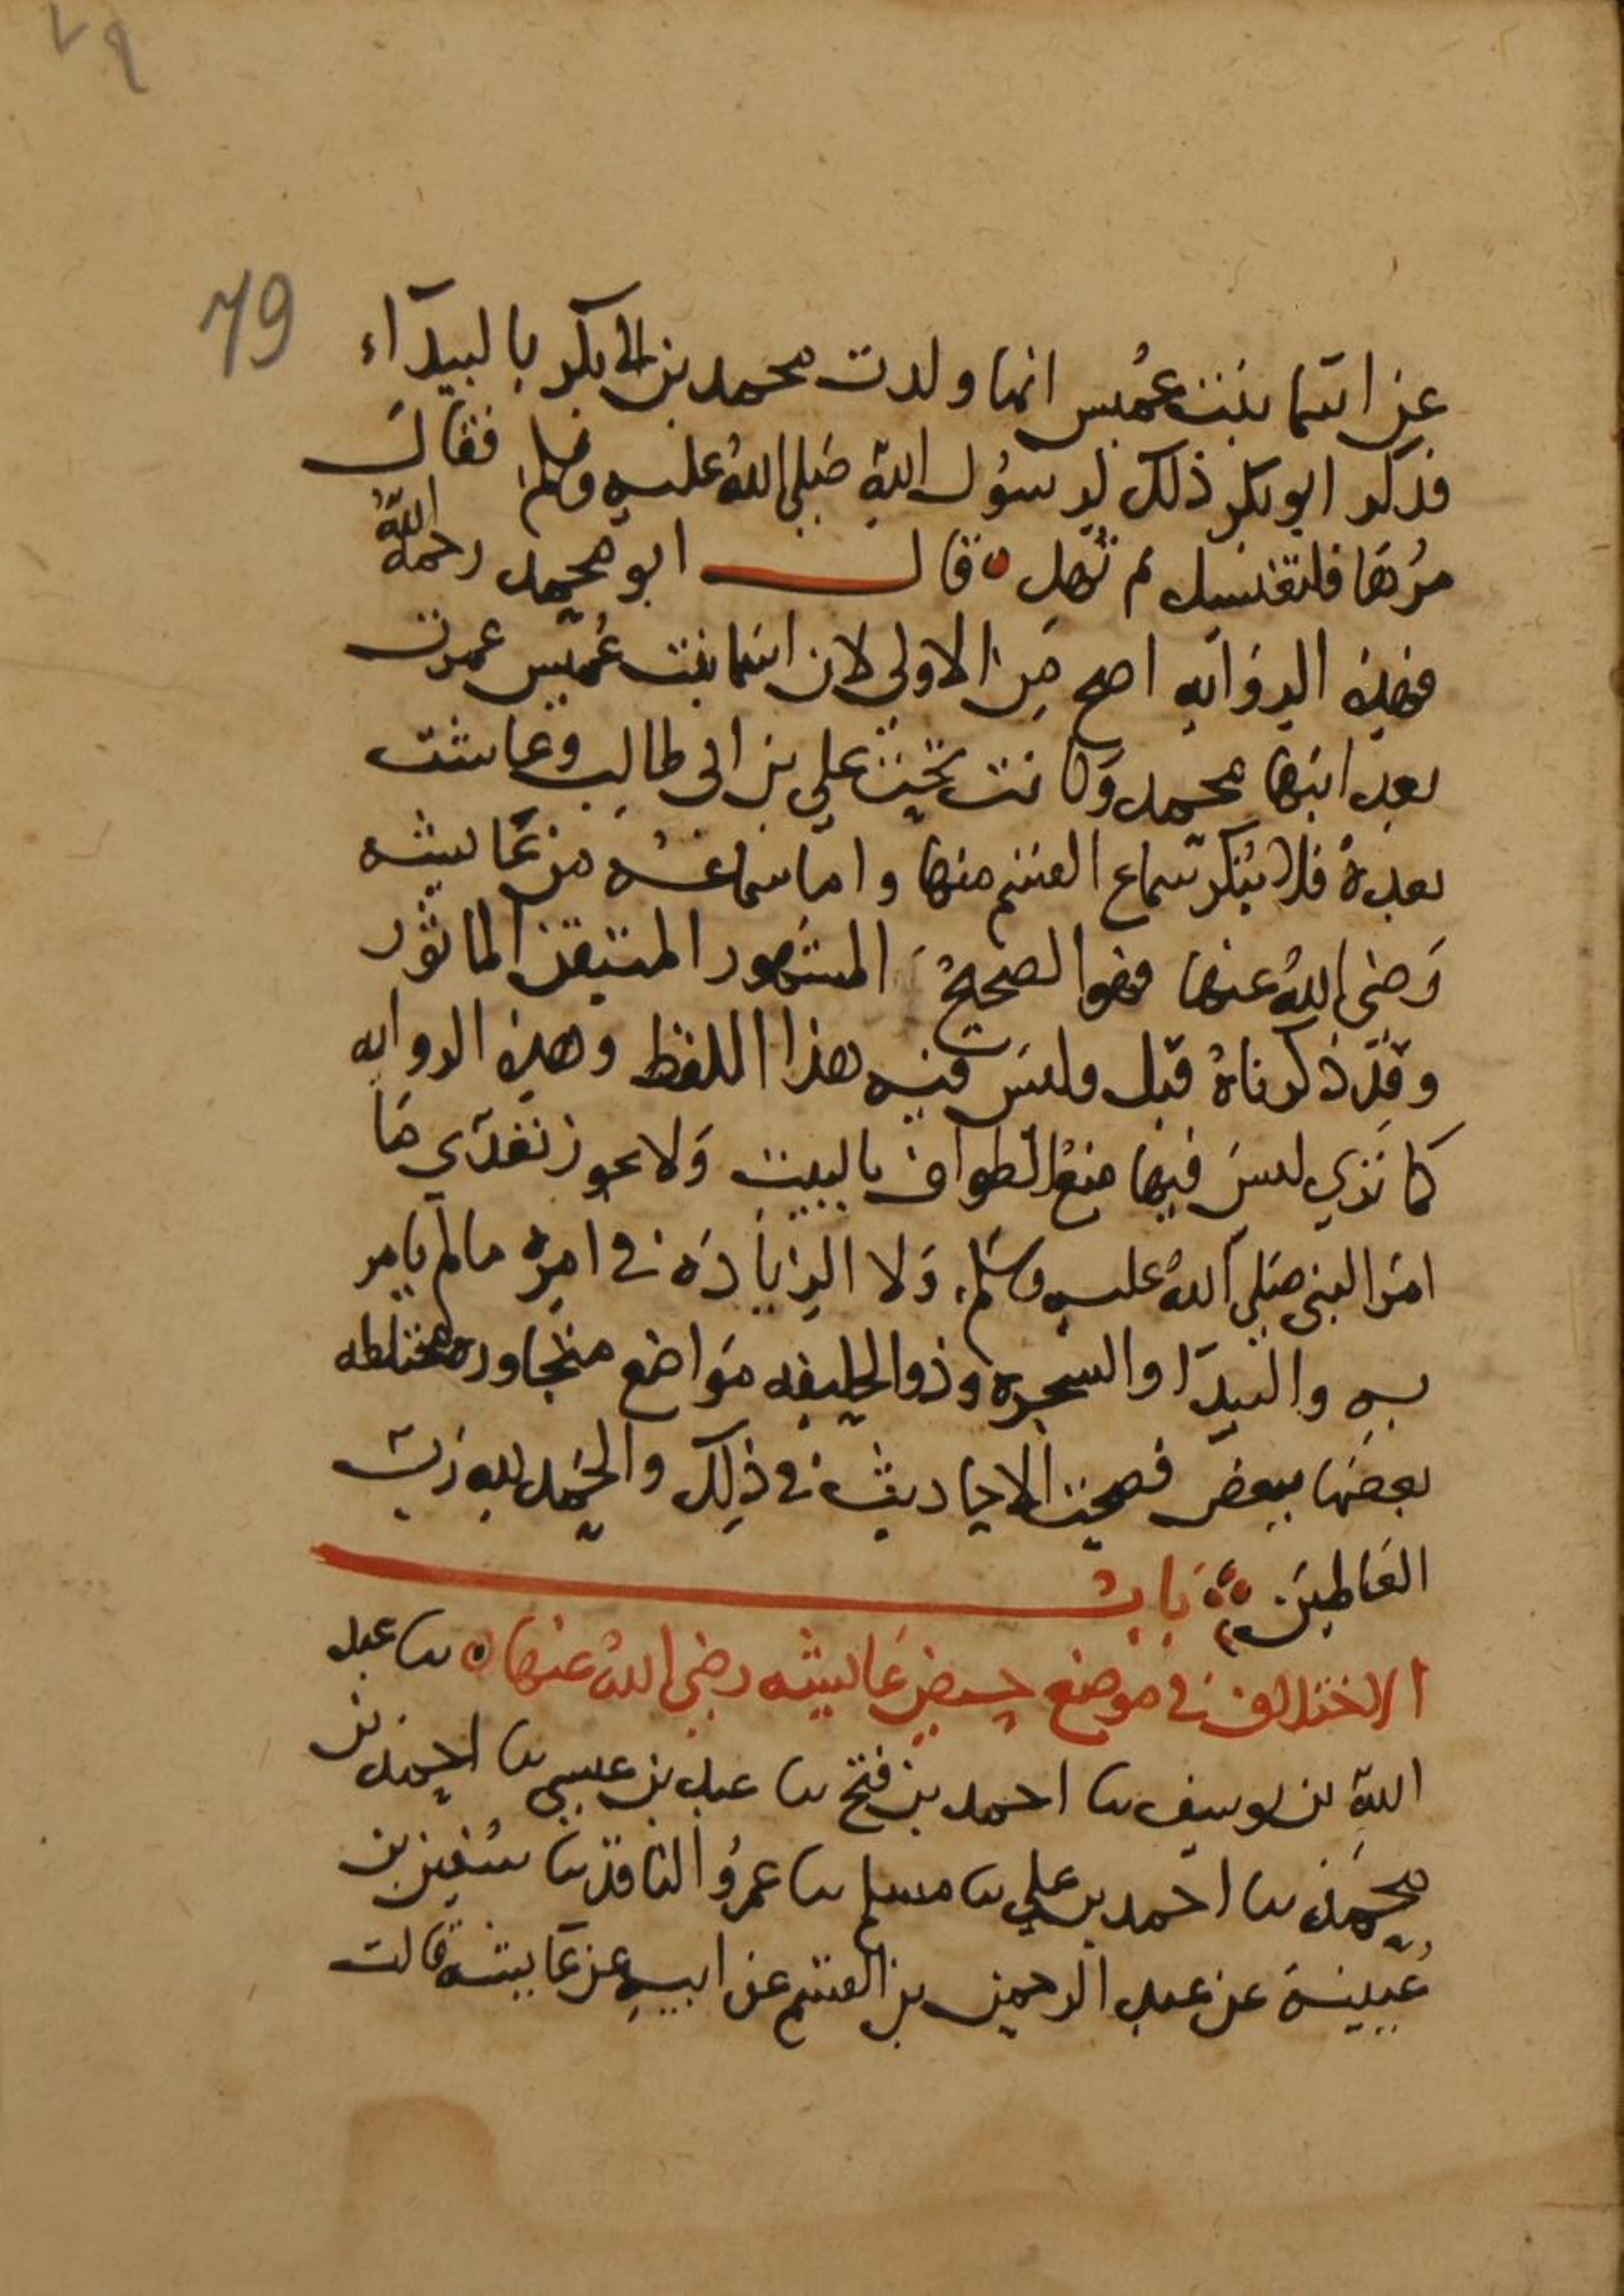 ٧٩
79
عن اسما بنت عُميس انها ولدت محمد بن ابي بكر بالبيدآء
فذكر ابو بكر ذلك لرسُول الله صَلى اللهُ عليه وسلم فقالَ
مُرْهَا فلتغتسل ثم تُهِل ه قال ابو محمد رحمه اللهُ
فهذه الروَايه اصح مِن الاولى لان اسما بنت عُميس عمرت
بعد ابنها محمد وَكانت تحت علي بن ابي طالب وعاشت
بعده فلا يُنكر سماع القسم منها واما سماعه من عَايشه
رَضي اللهُ عنها فهو الصحيحُ المشهور المتيقن الماثور
وقد ذكرناهُ قبل وليسَ فيه هذا اللفظ وهذه الروايه
كما تري ليسَ فيها منعُ الطواف بالبيت وَلا يجوز تعدّي مَا
امَر النبي صَلى اللهُ عليه وسَلم وَلا الزيَادَه في امره ما لم يامر
به والبيدَا والشجره وذو الحليفه مَوَاضع متجاوره مختلطه
بعضها ببعض فصحت الاحاديث في ذلِك والحَمد لله رَبّ
العَالمين بَابُ
الاختلاف في موضع حيض عَايشه رضي اللهُ عنها ه نا عبد
الله بن يوسف نا احمد بن فتح نا عبد بن عيسي نا احمد بن
محمَد نا احمد بن علي نا مسلم نا عمرُو الناقد نا سُفين بن
عُيينة عن عبد الرحمن بن القسم عن ابيهِ عن عَايشه قالت